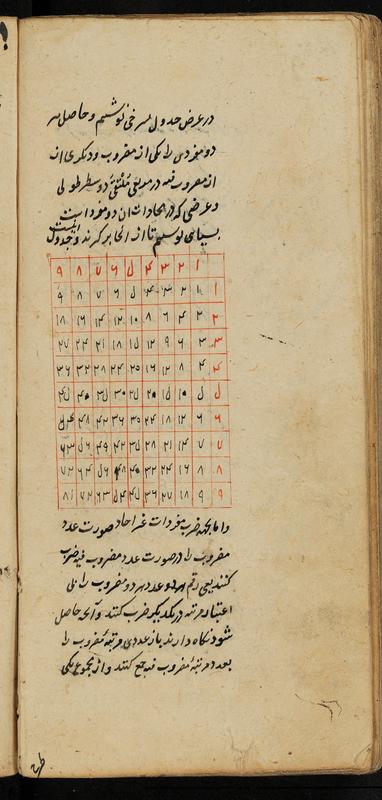 در عرض جدول بسرخی نوشتیم و حاصل هر
دو مفردی را یکی از مضروب و دیگری از
از مضروب فیه در مربعی ملتقی دو سطر طولی
و عرضی که در محاذات ان دو مفرد است
بسیاهی نوشتیم تا از انجا بر گیرند و جدول اینست
۹ ۸ ۷ ۶ ۵ ۴ ۳ ۲ ۱
۹ ۸ ۷ ۶ ۵ ۴ ۳ ۲ ۱ ۱
۱۸ ۱۶ ۱۴ ۱۲ ۱۰ ۸ ۶ ۴ ۲ ۲
۲۷ ۲۴ ۲۱ ۱۸ ۱۵ ۱۲ ۹ ۶ ۳ ۳
۳۶ ۳۲ ۲۸ ۲۴ ۲۰ ۱۶ ۱۲ ۸ ۴ ۴
۴۵ ۴۰ ۳۵ ۳۰ ۲۵ ۲۰ ۱۵ ۱۰ ۵ ۵
۵۴ ۴۸ ۴۲ ۳۶ ۳۰ ۲۴ ۱۸ ۱۲ ۶ ۶
۶۳ ۵۶ ۴۹ ۴۲ ۳۵ ۲۸ ۲۱ ۱۴ ۷ ۷
۷۲ ۶۴ ۵۶ ۴۸ ۴۰ ۳۲ ۲۴ ۱۶ ۸ ۸
۸۱ ۷۲ ۶۳ ۵۴ ۴۵ ۳۶ ۲۷ ۱۸ ۹ ۹
و اما بجهة ضرب مفردات غیر احاد صورت عدد
مضروب را در صورت عدد مضروب فیه ضرب
کنند یعنی رقم هر دو عدد هر دو مضروب را بی
اعتبار مرتبه در یکدیگر ضرب کنند و آنچه حاصل
شود نگاه دارند باز عددی مرتبهٔ مضروب را
بعدد مرتبهٔ مضروب فیه جمع کنند و از مجموع یکی